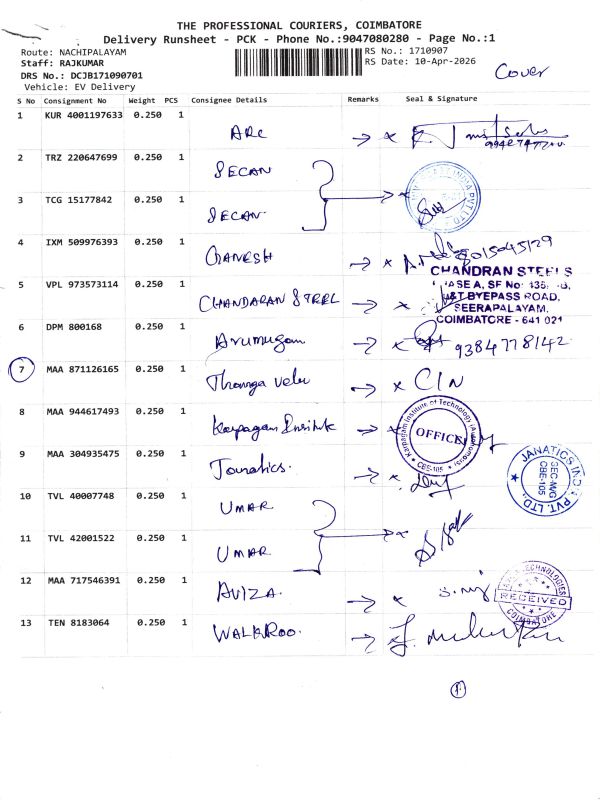 THE PROFESSIONAL COURIERS, COIMBATORE
Delivery Runsheet - PCK - Phone No.:9047080280 - Page No.:1
Route: NACHIPALAYAM
RS No.: 1710907
Staff: RAJKUMAR
RS Date: 10-Apr-2026
DRS No.: DCJB171090701
Cover
Vehicle: EV Delivery
S No Consignment No Weight PCS Consignee Details Remarks Seal & Signature
1 KUR 4001197633 0.250 1 ARC
2 TRZ 220647699 0.250 1 SECAN
3 TCG 15177842 0.250 1 SECAN
4 IXM 509976393 0.250 1 GANESH
CHANDRAN STEELS
5 VPL 973573114 0.250 1 CHANDARAN STEEL
BYEPASS ROAD,
SEERAPALAYAM,
COIMBATORE - 641 021
6 DPM 800168 0.250 1 Arumugam 9384778142
7 MAA 871126165 0.250 1 Thangavelu CIN
8 MAA 944617493 0.250 1 Karpagam
Karpagam Institute of Technology
OFFICE
CBE-105
9 MAA 304935475 0.250 1
JANATICS INDIA PVT. LTD.,
CBE-105
10 TVL 40007748 0.250 1 UMAR
11 TVL 42001522 0.250 1 UMAR
12 MAA 717546391 0.250 1 AVIZA
TECHNOLOGIES
RECEIVED
COIMBATORE
13 TEN 8183064 0.250 1 WALKROO